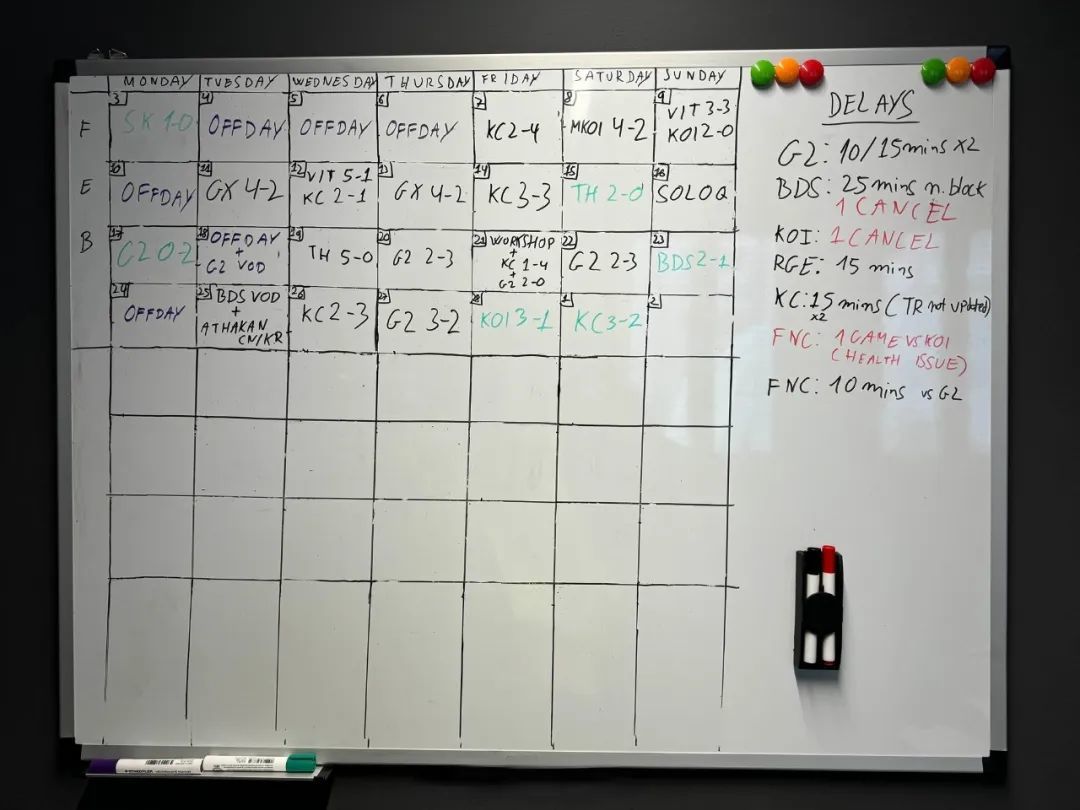 MONDAY TUESDAY WEDNESDAY THURSDAY FRIDAY SATURDAY SUNDAY
F
3 SK 1-0
4 OFFDAY
5 OFFDAY
6 OFFDAY
7 KC 2-4
8 MKOI 4-2
9 VIT 3-3
KOI 2-0
E
10 OFFDAY
11 GX 4-2
12 VIT 5-1
KC 2-1
13 GX 4-2
14 KC 3-3
15 TH 2-0
16 SOLOQ
B
17 G2 0-2
18 OFFDAY
+
G2 VOD
19 TH 5-0
20 G2 2-3
21 WORKSHOP
+
KC 1-4
+
G2 2-0
22 G2 2-3
23 BDS 2-1
24 OFFDAY
25 BDS VOD
+
ATHAKAN
CN/KR
26 KC 2-3
27 G2 3-2
28 KOI 3-1
1 KC 3-2
2
DELAYS
G2: 10/15 mins x2
BDS: 25 mins n. block
1 CANCEL
KOI: 1 CANCEL
RGE: 15 mins
KC: 15 mins (TR not updated)
x2
FNC: 1 GAME VS KOI
(HEALTH ISSUE)
FNC: 10 mins vs G2